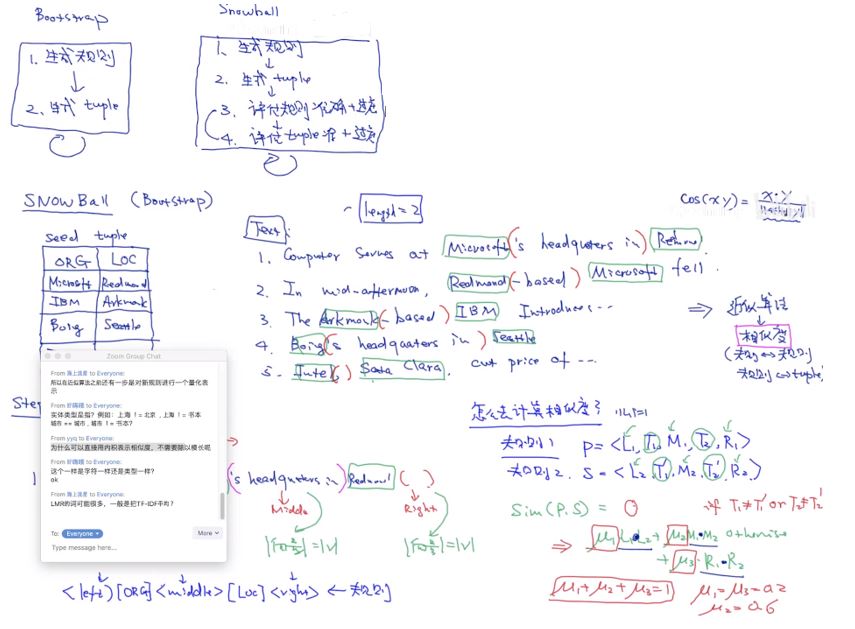 Bootstrap
1. 生成规则
2. 生成 tuple
Snowball
1. 生成规则
2. 生成 tuple
3. 评估规则准确+过滤
4. 评估tuple准+过滤
SNOWBall (Bootstrap)
seed tuple
ORG LOC
Microsoft Redmond
IBM Armonk
Boing Seattle
length=2
Text:
1. Computer Serves at Microsoft('s headquters in) Redmond.
2. In mid-afternoon, Redmond(-based) Microsoft fell.
3. The Armonk(-based) IBM Introduces ...
4. Boing('s headquaters in) Seattle
5. Intel(,) Santa Clara, cut price of ...
cos(x y) = x·y
⇒ 近似算法
相似度
(规则↔规则
规则↔tuple)
Zoom Group Chat
From 海上流星 to Everyone:
所以在近似算法之前还有一步是对新规则进行一个量化表示
to Everyone:
实体类型是指？例如：上海 != 北京，上海 != 书本
城市 == 城市，城市 != 书本？
From yyq to Everyone:
为什么可以直接用内积表示相似度，不需要除以模长呢
to Everyone:
这个一样是字符一样还是类型一样？
ok
From 海上流星 to Everyone:
LMR的词可能很多，一般是把TF-IDF平均？
To: Everyone More
Type message here...
Step
's headquters in) Redmond ( )
Middle Right
=|v| =|v|
<left>[ORG]<middle>[LOC]<right> ← 规则
怎么去计算相似度?
规则1 P=<L₁, T₁, M₁, T₂, R₁>
规则2. S=<L₂, T₁', M₂, T₂', R₂>
Sim(P.S) = 0 if T₁≠T₁' or T₂≠T₂'
⇒ μ₁L₁·L₂ + μ₂M₁·M₂ otherwise
+ μ₃·R₁·R₂
μ₁+μ₂+μ₃=1
μ₁=μ₃=0.2
μ₂=0.6